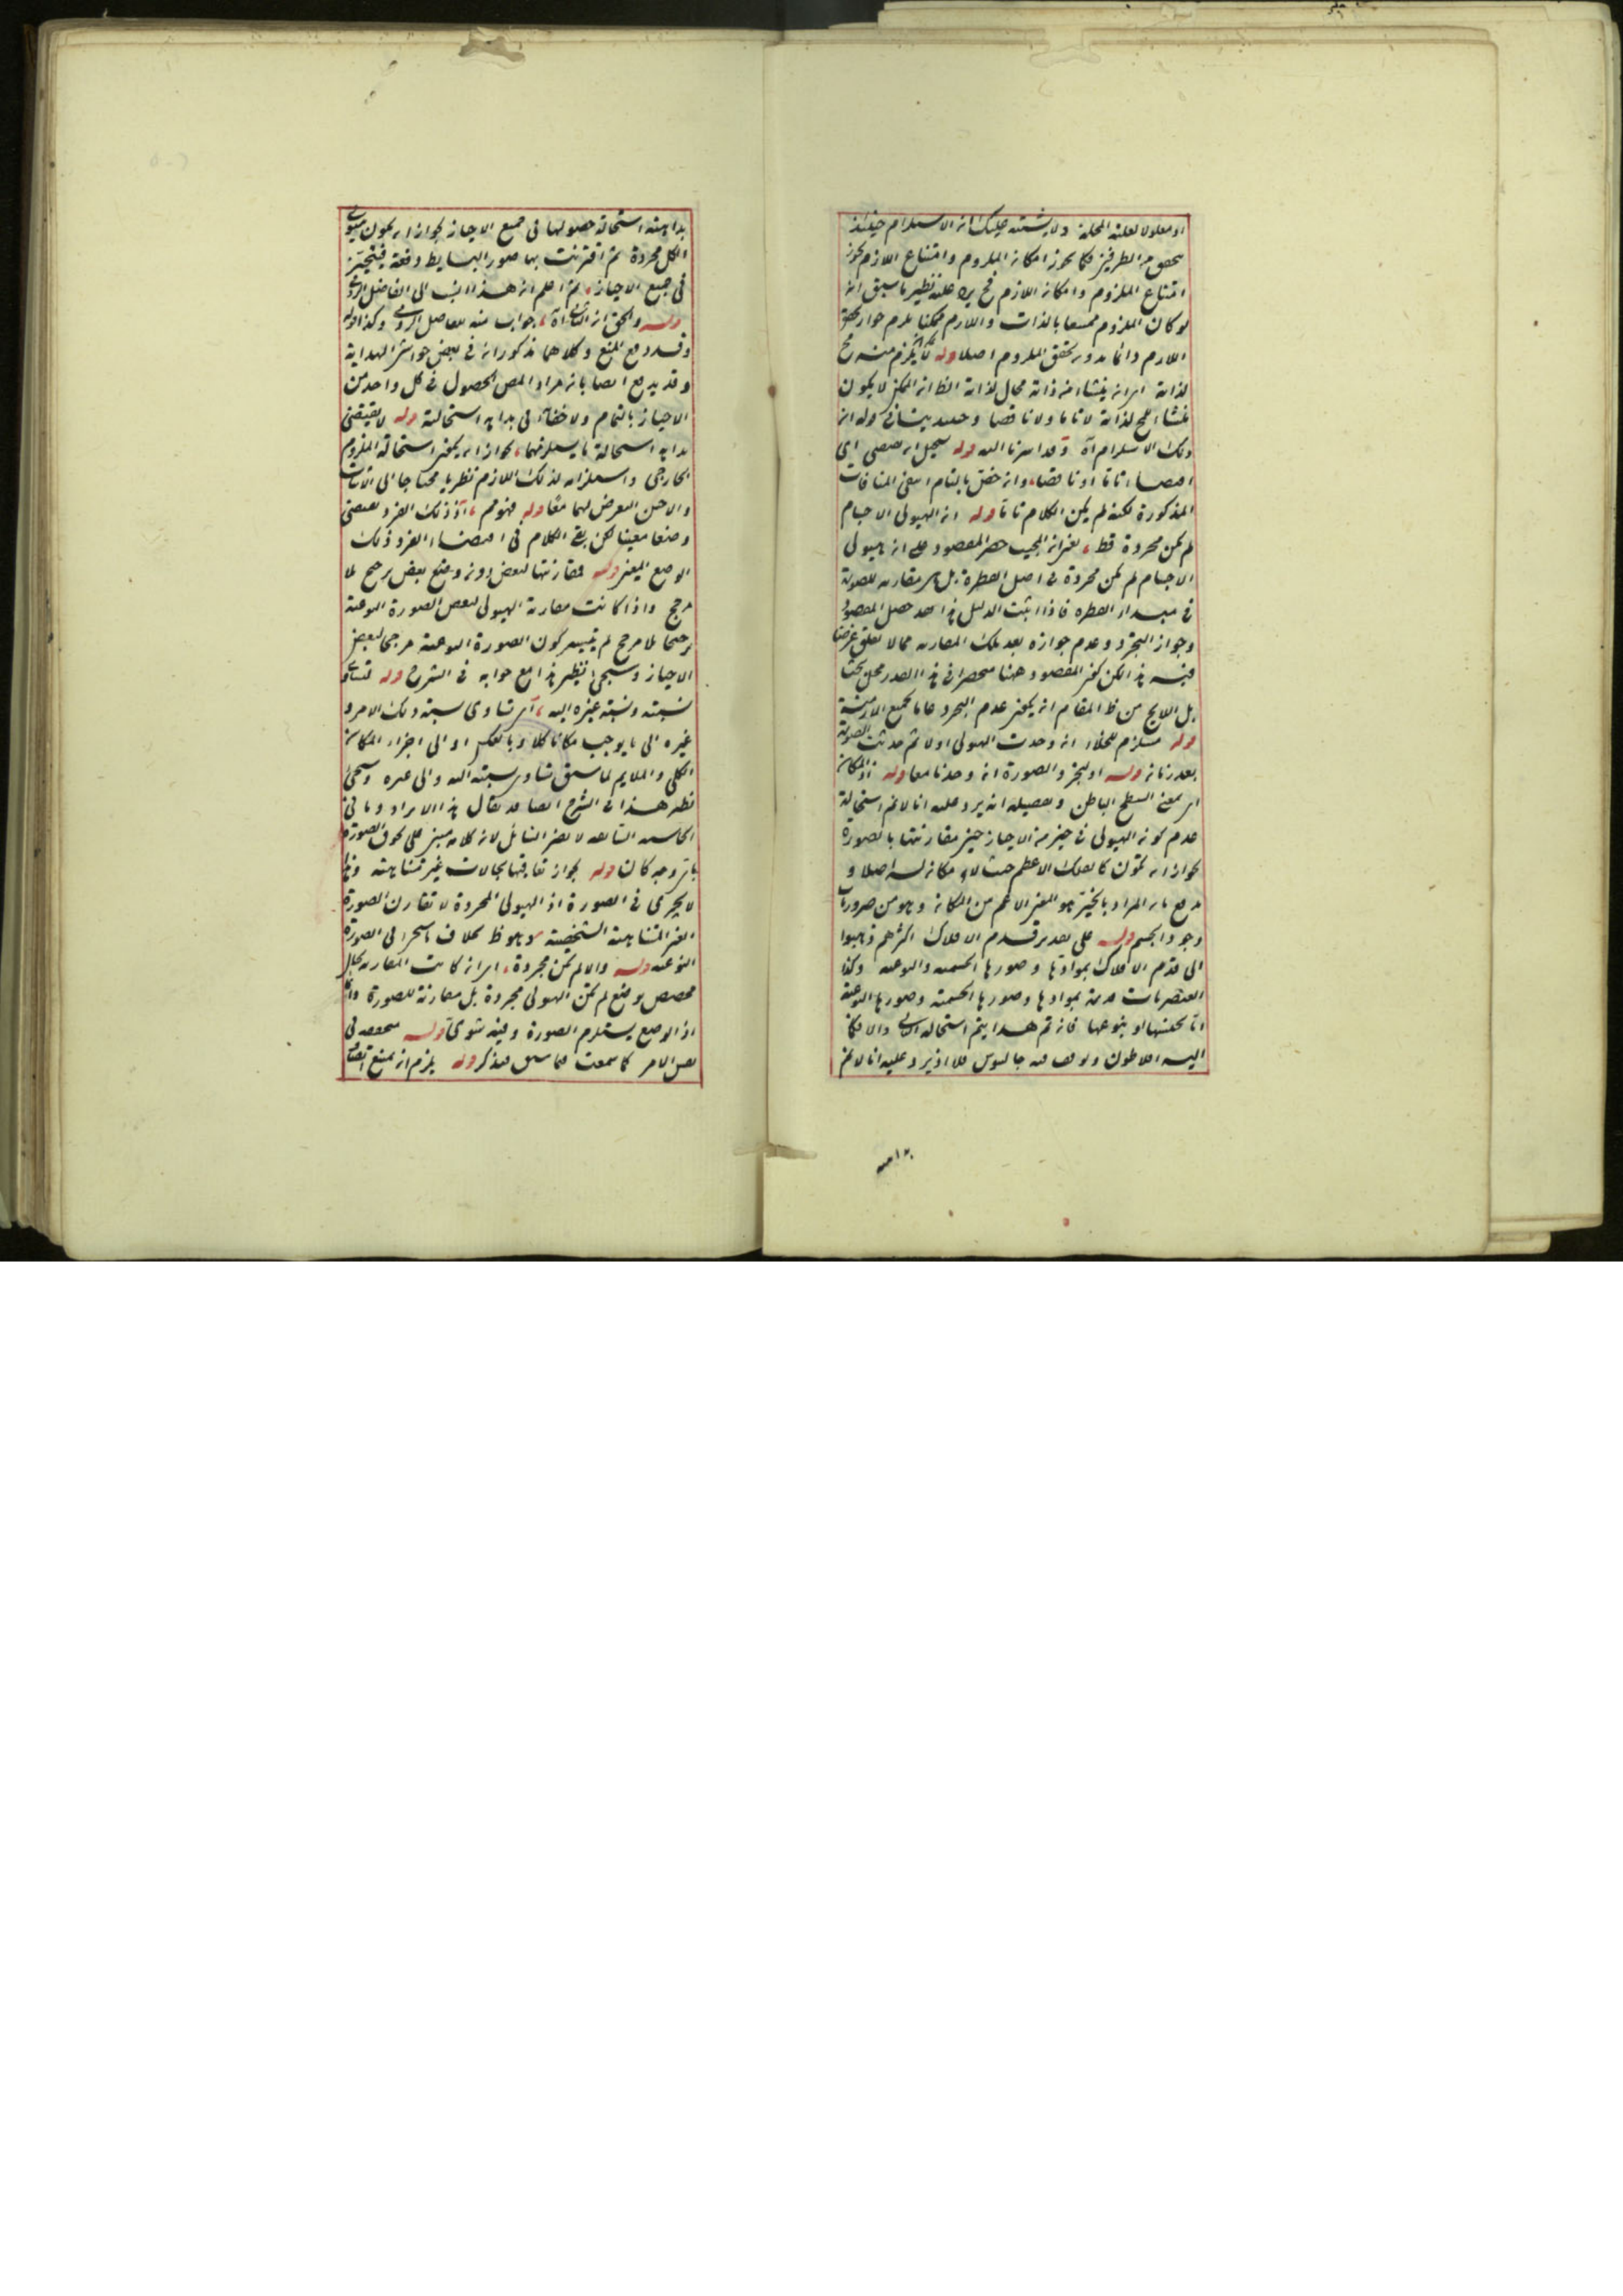 او معلولا لعلته المحلة ولا يشتبه عليك ان الاستلزام حينئذ
يتحقق من الطرفين فكما يجوز امكان الملزوم وامتناع اللازم يجوز
امتناع الملزوم وامكان اللازم فح يرد عليه نظير ما سبق انه
لو كان الملزوم ممتنعا بالذات واللازم ممكنا يلزم جواز تحقق
اللازم دائما بدون تحقق الملزوم اصلا قوله لا يلزم منه مح
لذاته اى انه ينشاء منه ذاته محال لذاته الظ ان الممكن لا يكون
منشاء للمح لذاته لا تاما ولا ناقصا وحينئذ يناقى قوله ان
ذلك الاستلزام آه وقد اشرنا اليه قوله يستحيل ان يقتضى اى
اقتضاء تاما او ناقصا، وان خص بالتام انتفى المنافات
المذكورة لكنه لم يكن الكلام تاما قوله ان الهيولى الاجسام
لم يكن مجردة قط، يعنى ان المجيب حصر المقصود على ان هيولى
الاجسام لم يكن مجردة فى اصل الفطرة بل هى مقارنه للصورة
فى مبداء الفطره فاذا اثبت الدليل هذا القدر حصل المقصود
وجواز التجرد وعدم جوازه بعد تلك المقارنه مما لا تعلق غرضنا
فيه هذا لكن كون المقصود ههنا منحصرا فى هذا القدر محل بحث
بل اللايح من ظ المقام انه يكون عدم التجرد عاما لجميع الازمنة
قوله مستلزم للخلاء ان وجدت الهيولى اولا ثم حدثت الصورة
بعد زمانه قوله او لتحيز والصورة ان وجدنا معا قوله اذ المكان
اى بمعنى السطح الباطن وتفصيله انه يرد عليه انا لا نم استحالة
عدم كون الهيولى فى حيز من الاحياز حين مقارنتها بالصورة
لجواز ان يكون كالفلك الاعظم حيث لا مكان له اصلا و
يدفع بان المراد بالحيز هو المعنى الاعم من المكان وهو من ضروريات
وجود الجسم قوله على تقدير قدم الافلاك اكثرهم ذهبوا
الى قدم الافلاك بموادها وصورها الجسميه والنوعيه وكذا
العنصريات قديمة بموادها وصورها الجسمية وصورها النوعية
اما بجنسها او بنوعها فان تم هذا يتم استحاله الثانى والا فكما
اليه افلاطون وتوقف فيه جالينوس فلا اذ يرد عليه انا لا نم
بداهته استحالة حصولها فى جميع الاحياز لجواز ان يكون هيولى
الكل مجردة ثم اقترنت بها صور البسايط دفعة فيتحيز
فى جميع الاحياز، ثم اعلم ان هذا انسب الى الفاضل الرومى
قوله والحق ان الثانى آه، جواب منه للفاضل الرومى وكذا قوله
وقد دفع المنع وكلاهما مذكوران فى بعض حواشى الهداية
وقد يدفع ايضا بان مراد المص الحصول فى كل واحد من
الاحياز بالتمام ولا خفاء فى بداهه استحالته قوله لا يقتضى
بداهه استحالة ما يستلزمها، لجواز ان يكون استحالة الملزوم
الخارجى واستلزامه لذلك اللازم نظريا محتاجا الى الاثبات
والاحسن التعرض لهما معا قوله فهو مم، اذ ذلك الفرد يقتضى
وضعا معينا لكن بقى الكلام فى اقتضاء الفرد ذلك
الوضع المعين قوله فمقارنتها لبعض دونه وضع بعض ترجيح بلا
مرجح واذا كانت مقارنة الهيولى لبعض الصورة النوعية
ترجيحا بلا مرجح لم يتيسر كون الصورة النوعية مرجحا لبعض
الاحياز وسيجئ نظير هذا مع جوابه فى الشرح قوله لتساوى
نسبته ونسبته غيره اليه، اى تساوى نسبته ذلك الامر و
غيره الى ما يوجب مكانا كلا وبالعكس او الى اجزاء المكان
الكلى والملايم لما سبق تساوى نسبته اليه والى غيره وسيجئ
نظير هذا فى الشرح ايضا قد يقال هذا الايراد وما فى
الحاشيه السابقه لا يضر القائل لان كلامه مبنى على لحوق الصورة
باى وجه كان قوله لجواز تعاقبها بحالات غير متناهيته وهذا
لا يجرى فى الصورة اذ الهيولى المجردة لا تقارن الصورة
الغير المتناهية الشخصية وهو ظ بخلاف ما سيجئ فى الصورة
النوعيه قوله والا لم يكن مجردة، اى ان كانت المقارنه بحال
مخصص بوضع لم تكن الهيولى مجردة بل مقارنة للصورة دائما
اذ الوضع يستلزم الصورة وفيه شوى قوله متحققه فى
نفس الامر كما سمعت فيما سبق فتذكر قوله يلزم ان يمتنع اتصاف
١٢ منه